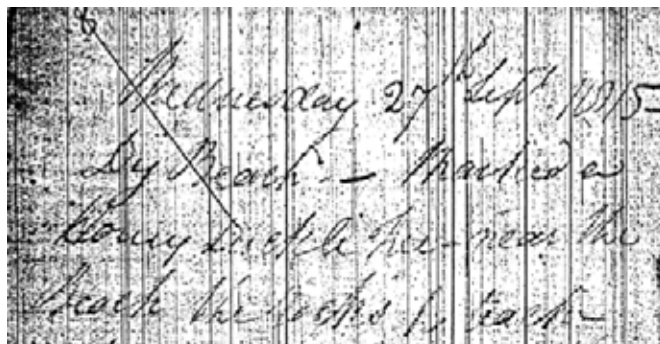 8
Wednesday 27th Sept. 1815
By Beach — Marked a
Honey Suckle Tree - near the
Beach the rocks